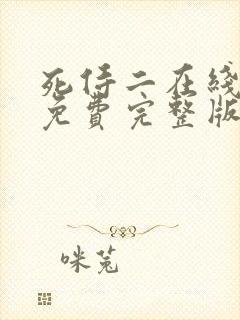 死侍二在线
免费完整版
咪兔